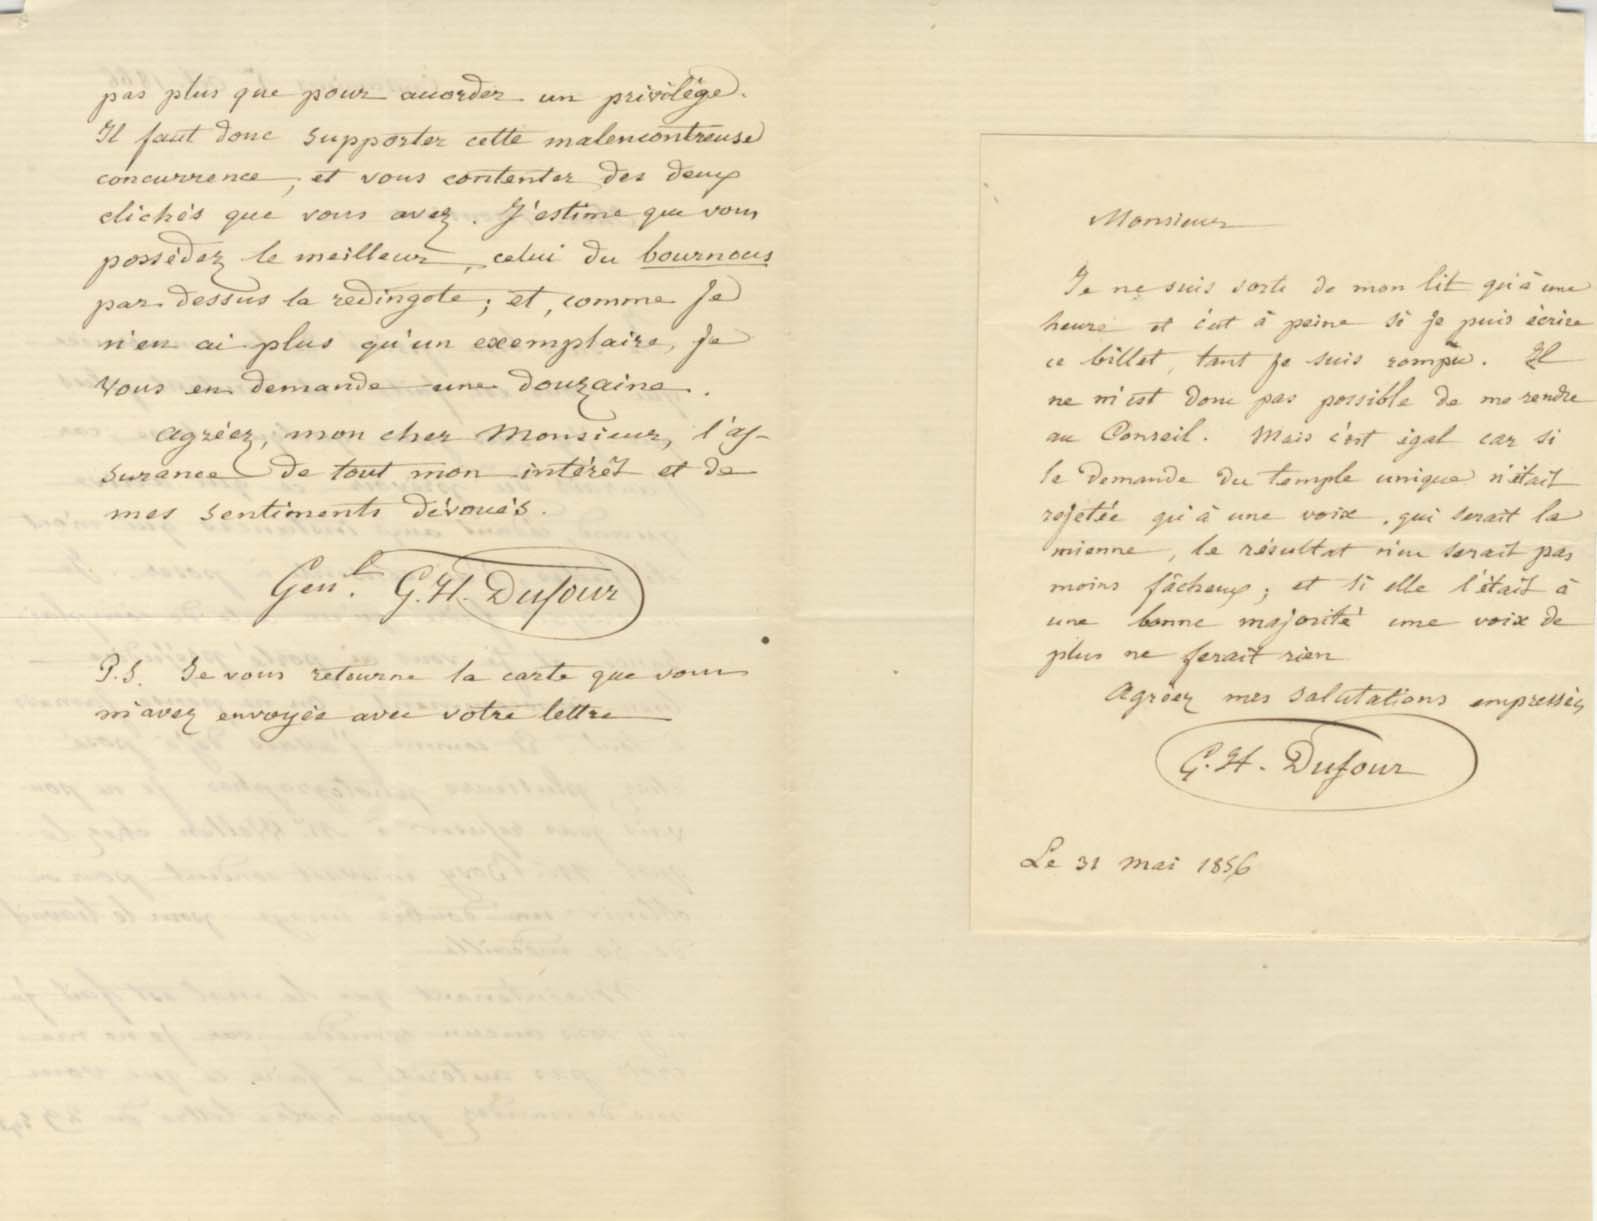 pas plus que pour accorder un privilège.
Il faut donc supporter cette malencontreuse
concurrence, et vous contenter des deux
clichés que vous avez. J'estime que vous
possédez le meilleur, celui du bournous
par dessus la redingote; et, comme je
n'en ai plus qu'un exemplaire, je
vous en demande une douzaine.
Agréez, mon cher Monsieur, l'as-
surance de tout mon intérêt et de
mes sentiments dévoués.
Genl. G.H. Dufour
P.S. Je vous retourne la carte que vous
m'avez envoyée avec votre lettre
Monsieur
Je ne suis sorti de mon lit qu'à une
heure et c'est à peine si je puis écrire
ce billet, tant je suis rompu. Il
ne m'est donc pas possible de me rendre
au Conseil. Mais c'est égal car si
la demande du temple unique n'était
rejetée qu'à une voix, qui serait la
mienne, le résultat n'en serait pas
moins fâcheux; et si elle l'était à
une bonne majorité une voix de
plus ne ferait rien
Agréez mes salutations empressées
G.H. Dufour
Le 31 mai 1856